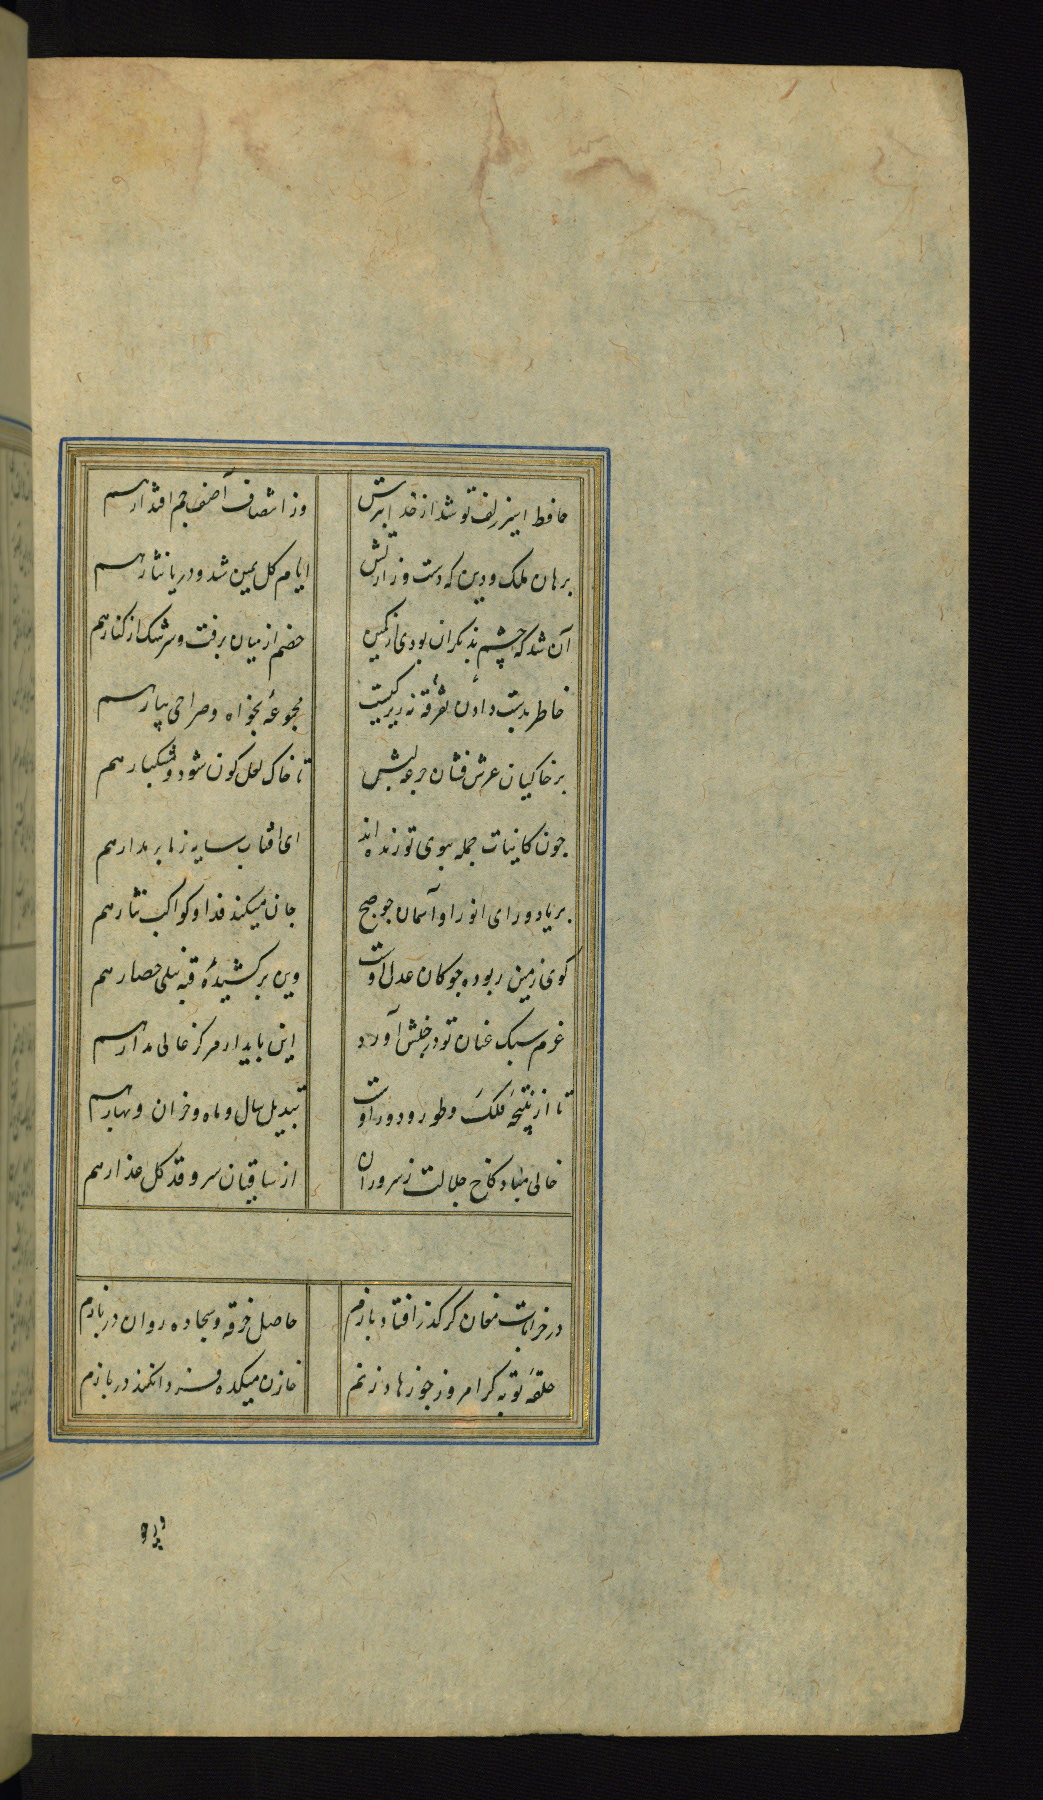 حافظ اسیر زلف تو شد از خدا بترس وز انتصاف آصف جم اقتدار هم
برهان ملک و دین که دست وزارتش ایام کل یمین شد و دریا نثار هم
آن شد که چشم بد نگران بودی از کمین خصم از میان برفت و سرشک از کنار هم
خاطر بدست دادن تفرقه نه زیرکیست مجموعهٔ بخواه و صراحی بیار هم
بر خاکیان عرش فشان جرعه لبش تا خاک لعل کون شود و مشکبار هم
جون کاینات جمله ببوی تو زنده اند ای افتاب سایه ز ما بر مدار هم
بر یاد و رای انور او آسمان جو صبح جان میکند فدا و کواکب نثار هم
کوی زمین ربوده جوکان عدل اوست وین برکشیدهٔ قبه نیلی حصار هم
عزم سبک عنان تو در جنبش آورد این پایدار مرکز عالی مدار هم
تا از نتیجهٔ فلک و طور و دور اوست تبدیل سال و ماه و خزان و بهار هم
خالی مباد کاخ جلالت ز سروران از ساقیان سرو قد کل عذار هم
در خرابات مغان کر کذر افتد بازم حاصل خرقه و سجاده روان در بازم
حلقهٔ توبه کر امروز جو زهاد زنم خازن میکده فردا نکند در بازم